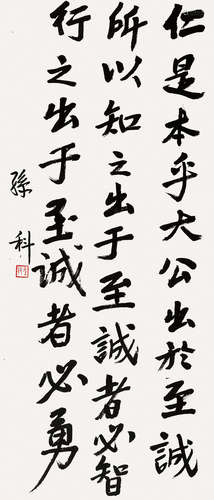 仁是本乎大公出於至誠
所以知之出于至誠者必智
行之出于至誠者必勇
孫科